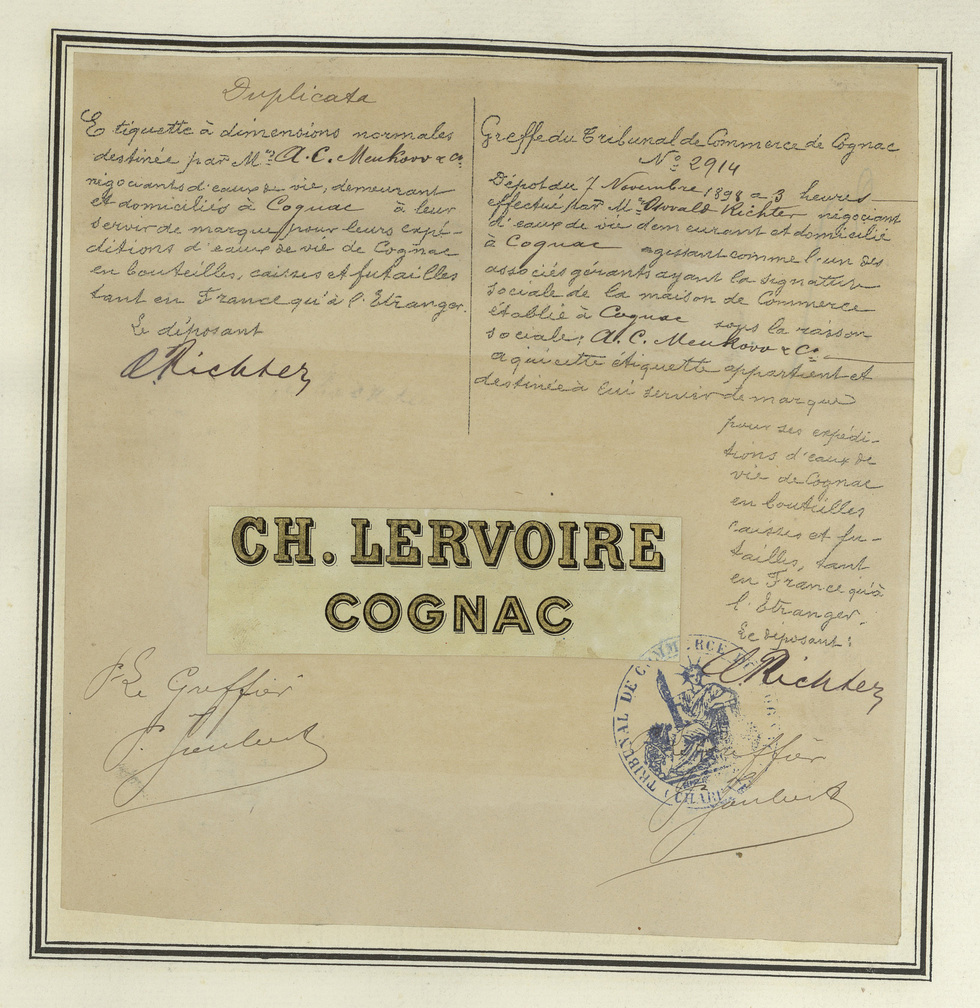 Duplicata
Etiquette à dimensions normales
destinée par Mrs A. C. Meukow & Co
négociants d'eaux de vie, demeurant
et domiciliés à Cognac à leur
servir de marque pour leurs expé-
ditions d'eaux de vie de Cognac
en bouteilles, caisses et futailles
tant en France qu'à l'Etranger.
Le déposant
Richter
Greffe du Tribunal de Commerce de Cognac
No 2914
Dépôt du 7 Novembre 1898 à 3 heures
effectué par Mr Oswald Richter négociant
d'eaux de vie demeurant et domicilié
à Cognac agissant comme l'un des
associés gérants ayant la signature
sociale de la maison de Commerce
établie à Cognac sous la raison
sociale: A. C. Meukow & Co
à qui cette étiquette appartient et
destinée à lui servir de marque
pour ses expédi-
tions d'eaux de
vie de Cognac
en bouteilles
caisses et fu-
tailles, tant
en France qu'à
l'Etranger.
Le déposant:
Richter
CH. LERVOIRE
COGNAC
Le Greffier
Joubert
TRIBUNAL DE COMMERCE DE COGNAC
Greffier
Joubert